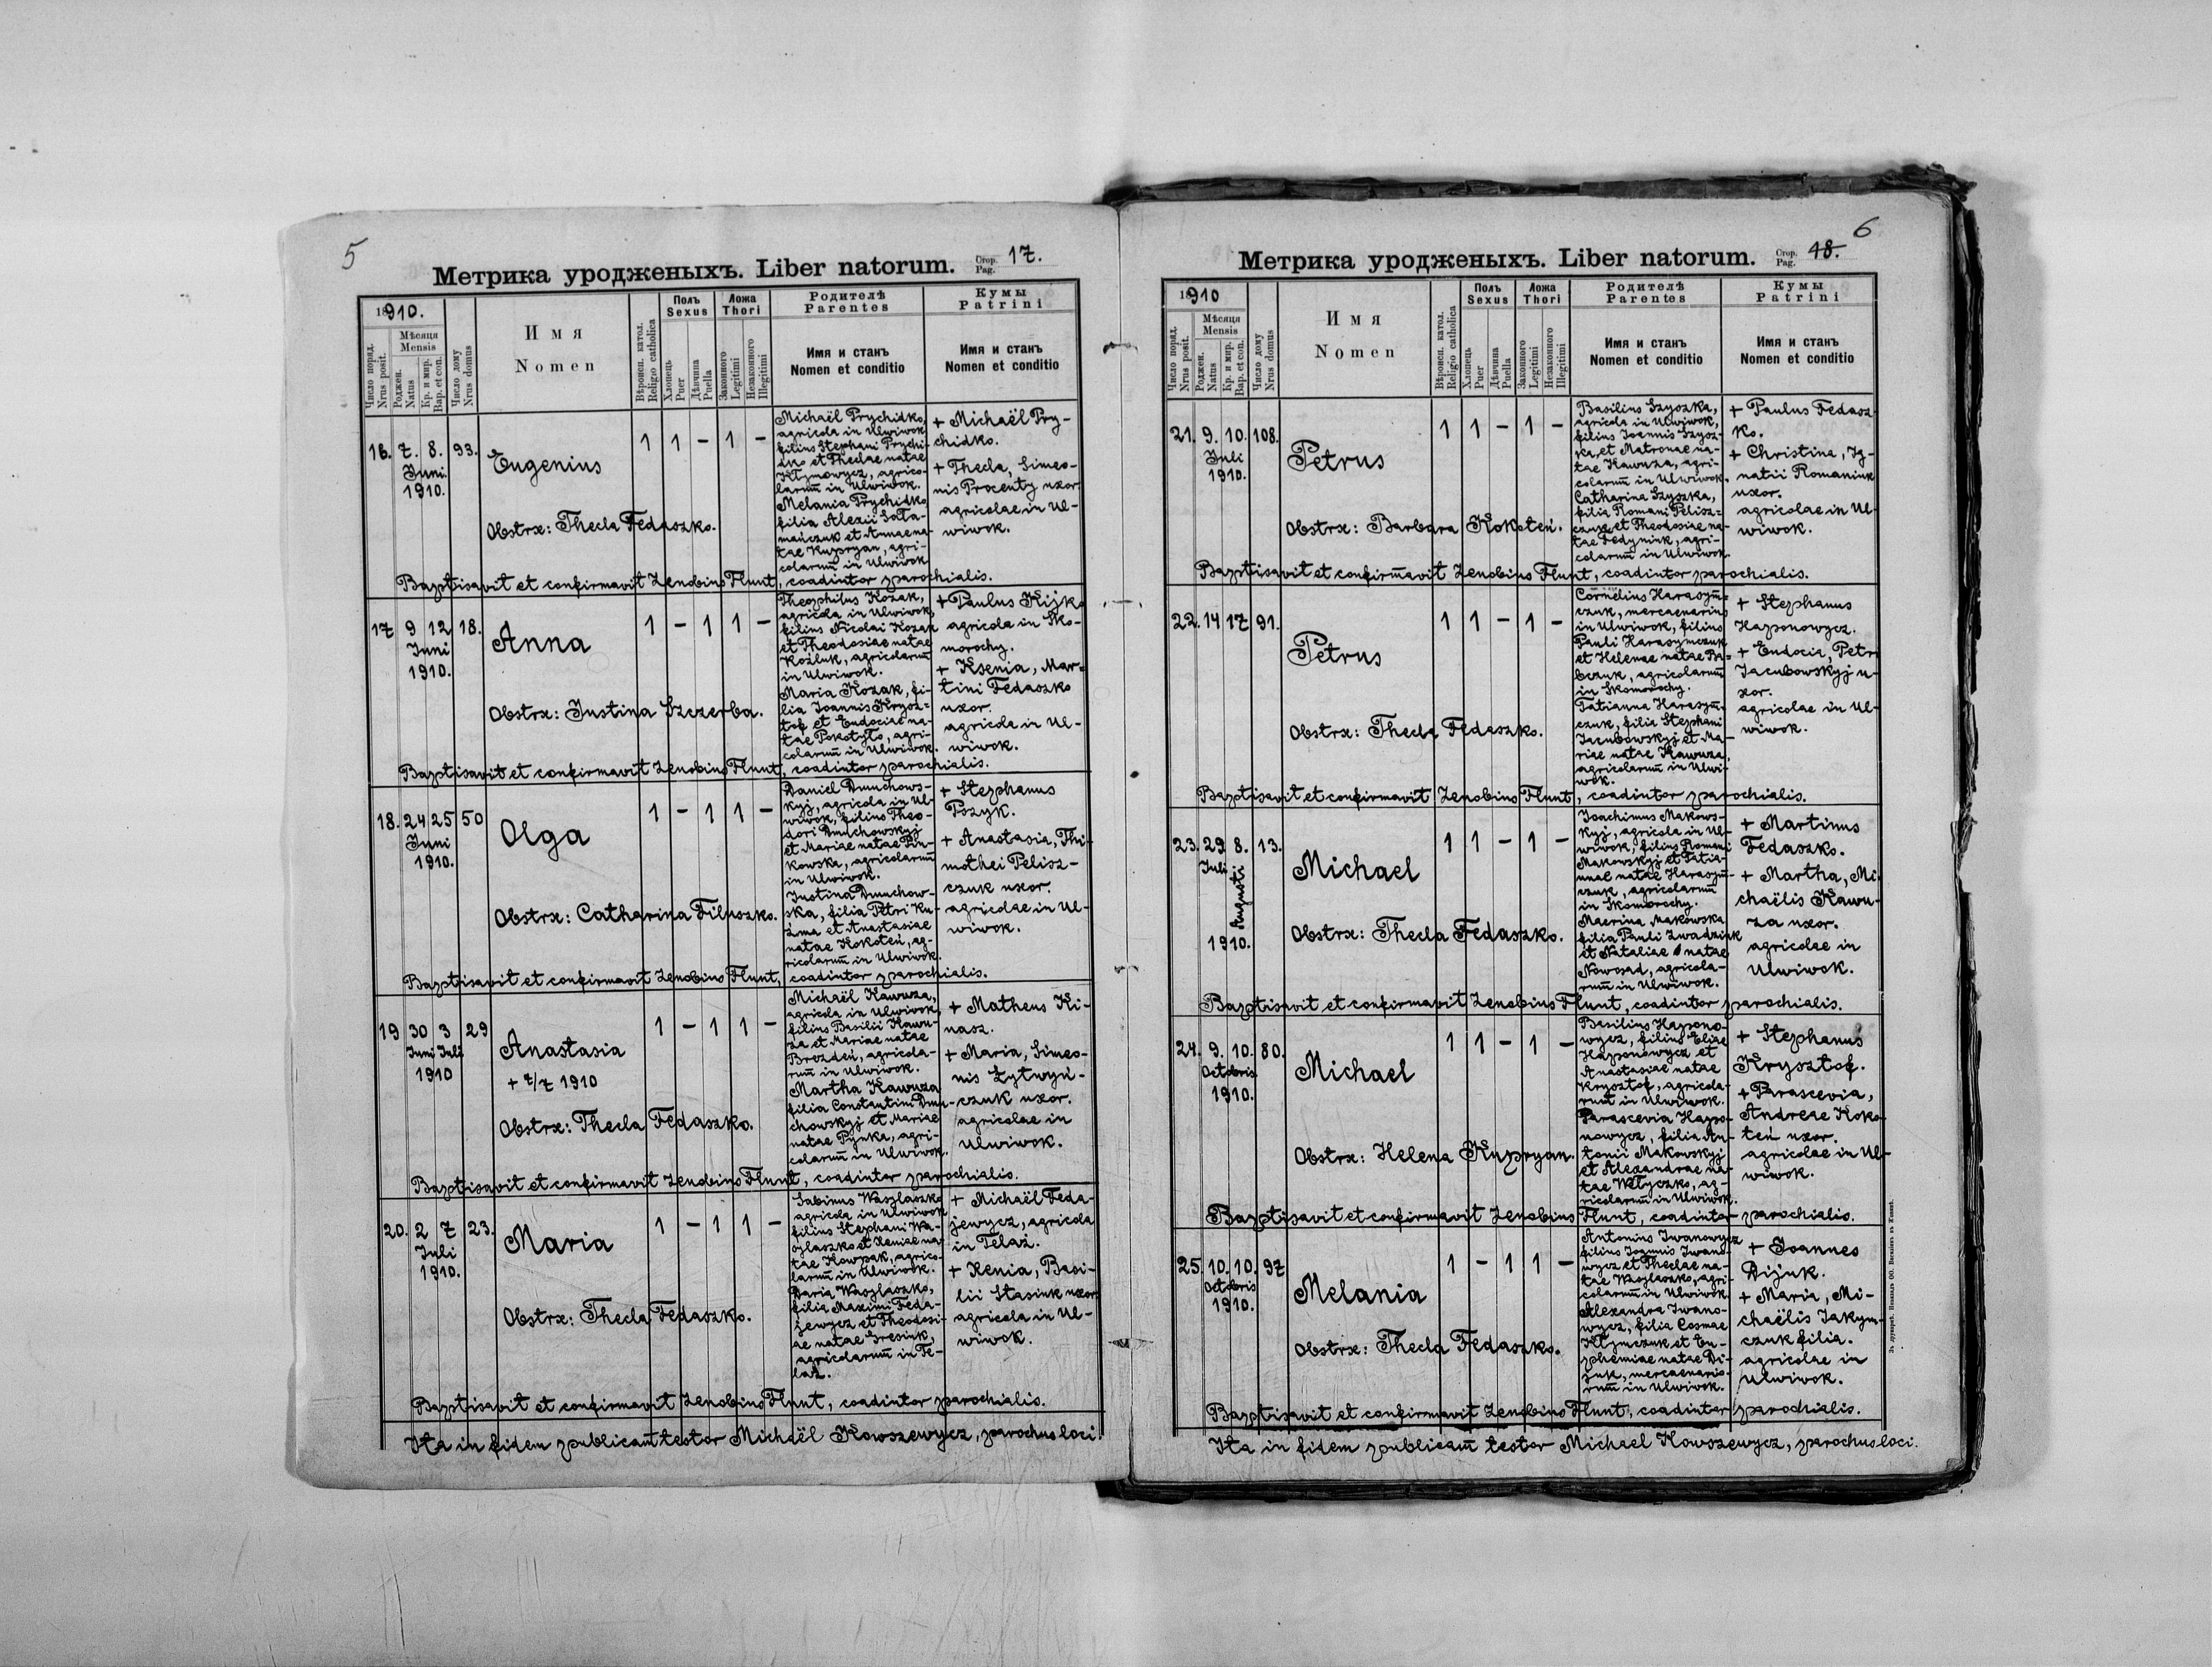 5
Метрика уродженыхъ. Liber natorum.
Стор.
Pag.
17.
1910.
Число поряд.
Nrus posit.
Мѣсяця
Mensis
Роджен.
Natus
Кр. и мир.
Bap. et con.
Число дому
Nrus domus
Имя
Nomen
Вѣроисп. катол.
Religio catholica
Полъ
Sexus
Хлопець
Puer
Дѣвчина
Puella
Ложа
Thori
Законного
Legitimi
Незаконного
Illegitimi
Родителѣ
Parentes
Имя и станъ
Nomen et conditio
Кумы
Patrini
Имя и станъ
Nomen et conditio
16. 7. 8. 93.
Juni
1910.
Eugenius
1 1 – 1 –
Obstrx: Thecla Fedaszko.
Michaël Prychidko,
agricola in Ulwiwok
filius Stephani Prychi-
dko et Theclae natae
Klymowycz, agrico-
larum in Ulwiwok.
Melania Prychidko
filia Alexii Sala-
mańczuk et Annae na-
tae Kupryan, agri-
colarum in Ulwiwok
+ Michaël Pry-
chidko.
+ Thecla, Simeo-
nis Procenty uxor
agricolae in Ul-
wiwok.
Baptisavit et confirmavit Zenobius Flunt, coadiutor parochialis.
17 9 12 18.
Juni
1910.
Anna
1 – 1 1 –
Obstrx: Justina Szczerba.
Theophilus Kozak,
agricola in Ulwiwok,
filius Nicolai Kozak
et Theodosiae natae
Koźluk, agricolarum
in Ulwiwok.
Maria Kozak, fi-
lia Joannis Krysz-
tof et Eudociae na-
tae Pokotyło, agri-
colarum in Ulwiwok.
+ Paulus Kijko
agricola in Sko-
morochy.
+ Ksenia, Mar-
tini Fedaszko
uxor.
agricola in Ul-
wiwok.
Baptisavit et confirmavit Zenobius Flunt, coadiutor parochialis.
18. 24 25 50
Juni
1910.
Olga
1 – 1 1 –
Obstrx: Catharina Filuszko.
Daniel Dmuchows-
kyj, agricola in Ul-
wiwok, filius Theo-
dori Dmuchowskyj
et Mariae natae Pin-
kowska, agricolarum
in Ulwiwok.
Justina Dmuchow-
ska, filia Petri Ku-
zma et Anastasiae
natae Kokoteń, ag-
ricolarum in Ulwiwok.
+ Stephanus
Pozyk.
+ Anastasia, Thi-
mothei Pelisz-
czuk uxor.
agricolae in Ul-
wiwok.
Baptisavit et confirmavit Zenobius Flunt, coadiutor parochialis.
19 30 3 29
Juni Juli
1910
Anastasia
+ 7/7 1910
1 – 1 1 –
Obstrx: Thecla Fedaszko.
Michaël Kawuza,
agricola in Ulwiwok,
filius Basilii Kawu-
za et Mariae natae
Brezdeń, agricola-
rum in Ulwiwok.
Martha Kawuza
filia Constantini Dmu-
chowskyj et Mariae
natae Pynka, agri-
colarum in Ulwiwok.
+ Matheus Ki-
nasz.
+ Maria, Simeo-
nis Łytwyń-
czuk uxor.
agricolae in
Ulwiwok.
Baptisavit et confirmavit Zenobius Flunt, coadiutor parochialis.
20. 2 7 23.
Juli
1910.
Maria
1 – 1 1 –
Obstrx: Thecla Fedaszko.
Sabinus Waszlaszko
agricola in Ulwiwok
filius Stephani Wa-
szlaszko et Xeniae na-
tae Kowpak, agrico-
larum in Ulwiwok.
Daria Waszlaszko,
filia Maximi Feda-
jewycz et Theodosi-
ae natae Gresiuk,
agricolarum in Te-
laż.
+ Michaël Feda-
jewycz, agricola
in Telaż.
+ Xenia, Basi-
lii Stasiuk uxor
agricola in Ul-
wiwok.
Baptisavit et confirmavit Zenobius Flunt, coadiutor parochialis.
Ita in fidem publicam testor Michaël Kowszewycz, parochus loci.
6
Метрика уродженыхъ. Liber natorum.
Стор.
Pag.
18.
1910
Число поряд.
Nrus posit.
Мѣсяця
Mensis
Роджен.
Natus
Кр. и мир.
Bap. et con.
Число дому
Nrus domus
Имя
Nomen
Вѣроисп. катол.
Religio catholica
Полъ
Sexus
Хлопець
Puer
Дѣвчина
Puella
Ложа
Thori
Законного
Legitimi
Незаконного
Illegitimi
Родителѣ
Parentes
Имя и станъ
Nomen et conditio
Кумы
Patrini
Имя и станъ
Nomen et conditio
21. 9. 10. 108.
Juli
1910.
Petrus
1 1 – 1 –
Obstrx: Barbara Kokoteń.
Basilius Szyszka,
agricola in Ulwiwok,
filius Joannis Szysz-
ka et Matronae na-
tae Kawuza, agri-
colarum in Ulwiwok.
Catharina Szyszka,
filia Romani Pelisz-
czuk et Theodosiae na-
tae Fedyniuk, agri-
colarum in Ulwiwok.
+ Paulus Fedasz
ko.
+ Christina, Ig-
natii Romaniuk
uxor.
agricolae in Ul-
wiwok.
Baptisavit et confirmavit Zenobius Flunt, coadiutor parochialis.
22. 14 17 91.
Petrus
1 1 – 1 –
Obstrx: Thecla Fedaszko.
Cornelius Harasym-
czuk, mercenarius
in Ulwiwok, filius
Pauli Harasymczuk
et Helenae natae Ba-
bczuk, agricolarum
in Skomorochy.
Tatianna Harasym-
czuk, filia Stephani
Jacubowskyj et Ma-
riae natae Kawuza,
agricolarum in Ulwi-
wok.
+ Stephanus
Haponowycz.
+ Eudocia, Petri
Jacubowskyj u-
xor.
agricolae in Ul-
wiwok.
Baptisavit et confirmavit Zenobius Flunt, coadiutor parochialis.
23. 29. 8. 13.
Juli Augusti
1910.
Michael
1 1 – 1 –
Obstrx: Thecla Fedaszko.
Joachimus Makows-
kyj, agricola in Ul-
wiwok, filius Romani
Makowskyj et Tatia-
nnae natae Harasym-
czuk, agricolarum
in Skomorochy.
Macrina Makowska
filia Pauli Zwadziuk
et Nataliae natae
Nowosad, agricola-
rum in Ulwiwok.
+ Martinus
Fedaszko.
+ Martha, Mi-
chaëlis Kawu-
za uxor.
agricolae in
Ulwiwok.
Baptisavit et confirmavit Zenobius Flunt, coadiutor parochialis.
24. 9. 10. 80.
Octobris
1910.
Michael
1 1 – 1 –
Obstrx: Helena Kupryan.
Basilius Hapono-
wycz, filius Eliae
Haponowycz et
Anastasiae natae
Krysztof, agricola-
rum in Ulwiwok.
Parascevia Hapo-
nowycz, filia An-
tonii Makowskyj
et Alexandrae na-
tae Wełyczko, ag-
ricolarum in Ulwiwok.
+ Stephanus
Krysztof.
+ Parascevia,
Andreae Koko-
teń uxor.
agricolae in Ul-
wiwok.
Baptisavit et confirmavit Zenobius Flunt, coadiutor parochialis.
25. 10. 10. 97
Octobris
1910.
Melania
1 – 1 1 –
Obstrx: Thecla Fedaszko.
Antonius Iwanowycz
filius Joannis Iwano-
wycz et Theclae na-
tae Waszlaszko, agri-
colarum in Ulwiwok.
Alexandra Iwano-
wycz, filia Cosmae
Klymczuk et Eu-
phemiae natae Di-
juk, mercenario-
rum in Ulwiwok.
+ Joannes
Dijuk.
+ Maria, Mi-
chaëlis Jakym-
czuk filia.
agricolae in
Ulwiwok.
Baptisavit et confirmavit Zenobius Flunt, coadiutor parochialis.
Ita in fidem publicam testor Michael Kowszewycz, parochus loci.